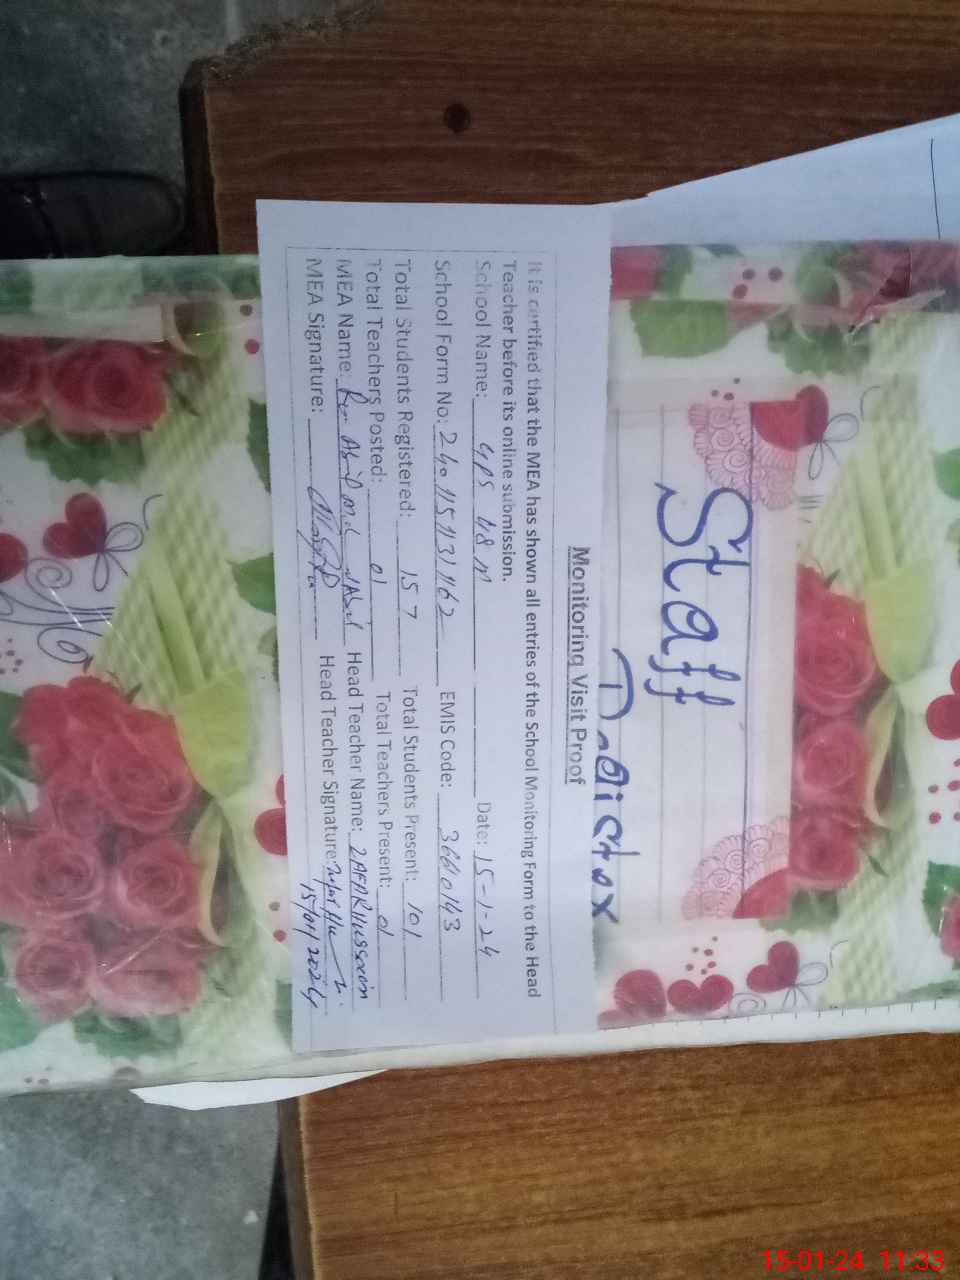 Staff
Monitoring Visit Proof
It is certified that the MEA has shown all entries of the School Monitoring Form to the Head
Teacher before its online submission.
School Name: GPS 48 M Date: 15-1-24
School Form No: EMIS Code: 36610143
Total Students Registered: 157 Total Students Present: 101
Total Teachers Posted: 01 Total Teachers Present: 01
MEA Name: Head Teacher Name: ZAFAR Hussain
MEA Signature: Head Teacher Signature:
15/01/2024
15-01-24 11:33